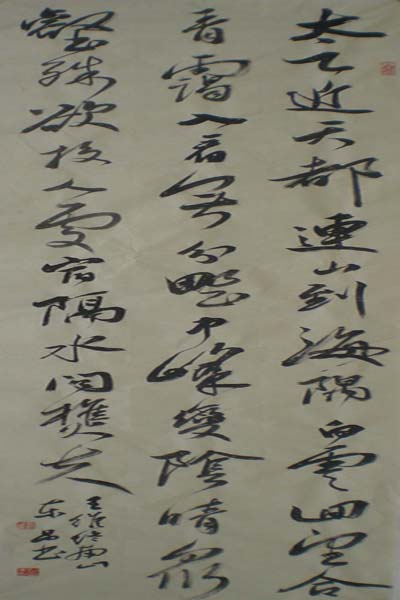 太乙近天都連山到海隅白雲回望合
青靄入看無分野中峰變陰晴眾
壑殊欲投人處宿隔水問樵夫
王維終南山
東書